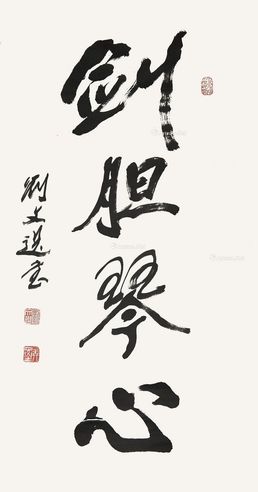 剑胆琴心
刘文选书